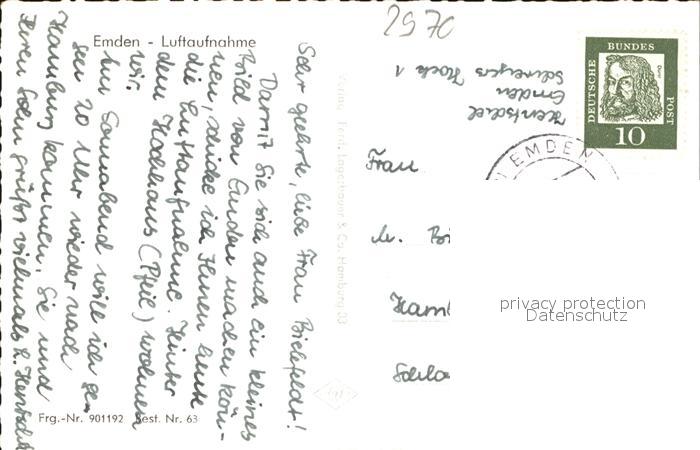 2970
Emden - Luftaufnahme
Sehr geehrte, liebe Frau Bielefeldt!
Damit Sie sich auch ein kleines
Bild von Emden machen kön-
nen, schicke ich Ihnen heute
die Luftaufnahme. Hinter
dem Hochhaus (Pfeil) wohnen
wir.
Am Sonnabend will ich ge-
gen 20 Uhr wieder nach
Hamburg kommen. Sie und
Ihren Sohn grüßt vielmals H. Hentschel
Frg.-Nr. 901192 Best. Nr. 63
Verlag Ferd. Lagerbauer & Co. Hamburg 33
Hentschel
Emden
1
DEUTSCHE
BUNDES
POST
Dürer
10
EMDEN
Frau
Bi
Ham
Schlo
privacy protection
Datenschutz